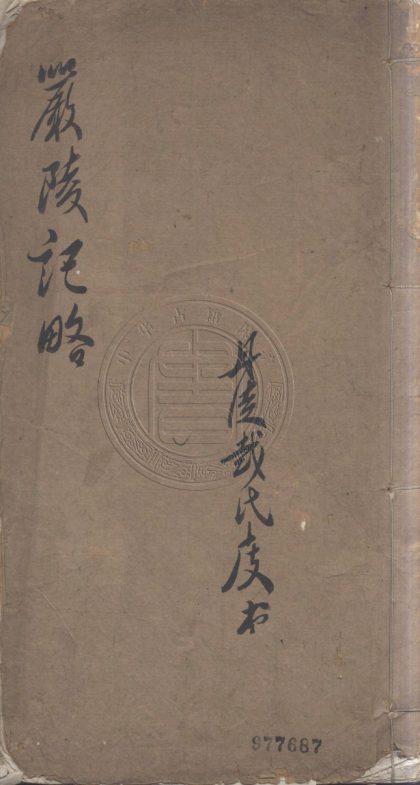 嚴陵記略
丹徒戴氏庋
977687